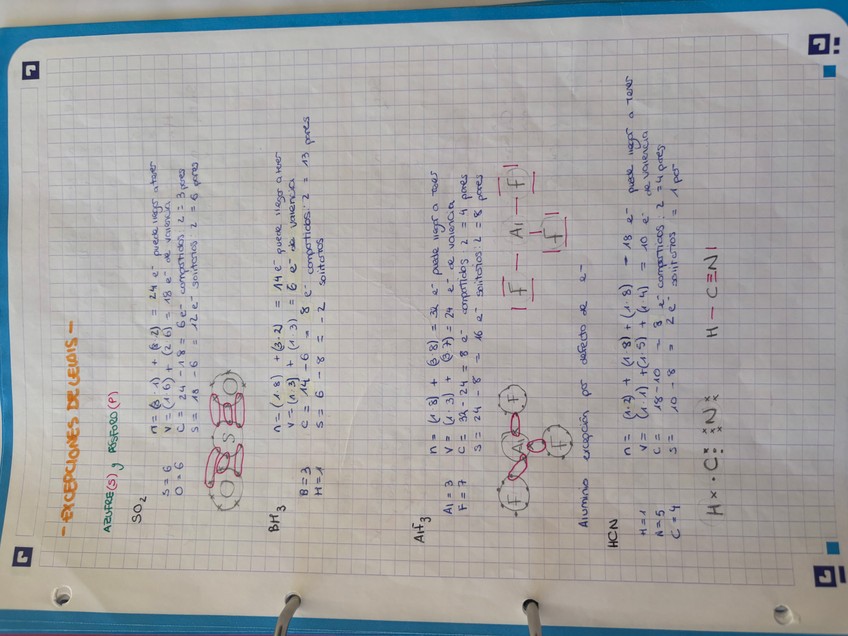 - EXCEPCIONES DE LEWIS -
AZUFRE (S) y FÓSFORO (P)
SO2
S = 6
O = 6
n = (8·1) + (8·2) = 24 e- puede llegar a tener
v = (1·6) + (2·6) = 18 e- de valencia
C = 24 - 18 = 6 e- compartidos : 2 = 3 pares
S = 18 - 6 = 12 e- solitarios : 2 = 6 pares
O S O
BH3
B = 3
H = 1
n = (1·8) + (3·2) = 14 e- puede llegar a tener
v = (1·3) + (1·3) = 6 e- de valencia
C = 14 - 6 = 8 e- compartidos : 2 = 13 pares
S = 6 - 8 = -2 solitarios
AlF3
Al = 3
F = 7
n = (1·8) + (3·8) = 32 e- puede llegar a tener
v = (1·3) + (3·7) = 24 e- de valencia
C = 32 - 24 = 8 e- compartidos : 2 = 4 pares
S = 24 - 8 = 16 e- solitarios : 2 = 8 pares
F Al F
F
F — Al — F
F
Aluminio excepción por defecto de e-
HCN
H = 1
N = 5
C = 4
n = (1·2) + (1·8) + (1·8) = 18 e- puede llegar a tener
v = (1·1) + (1·5) + (1·4) = 10 e- de valencia
C = 18 - 10 = 8 e- compartidos : 2 = 4 pares
S = 10 - 8 = 2 e- solitarios = 1 par
H × · C ⁝ N
H — C ≡ N|